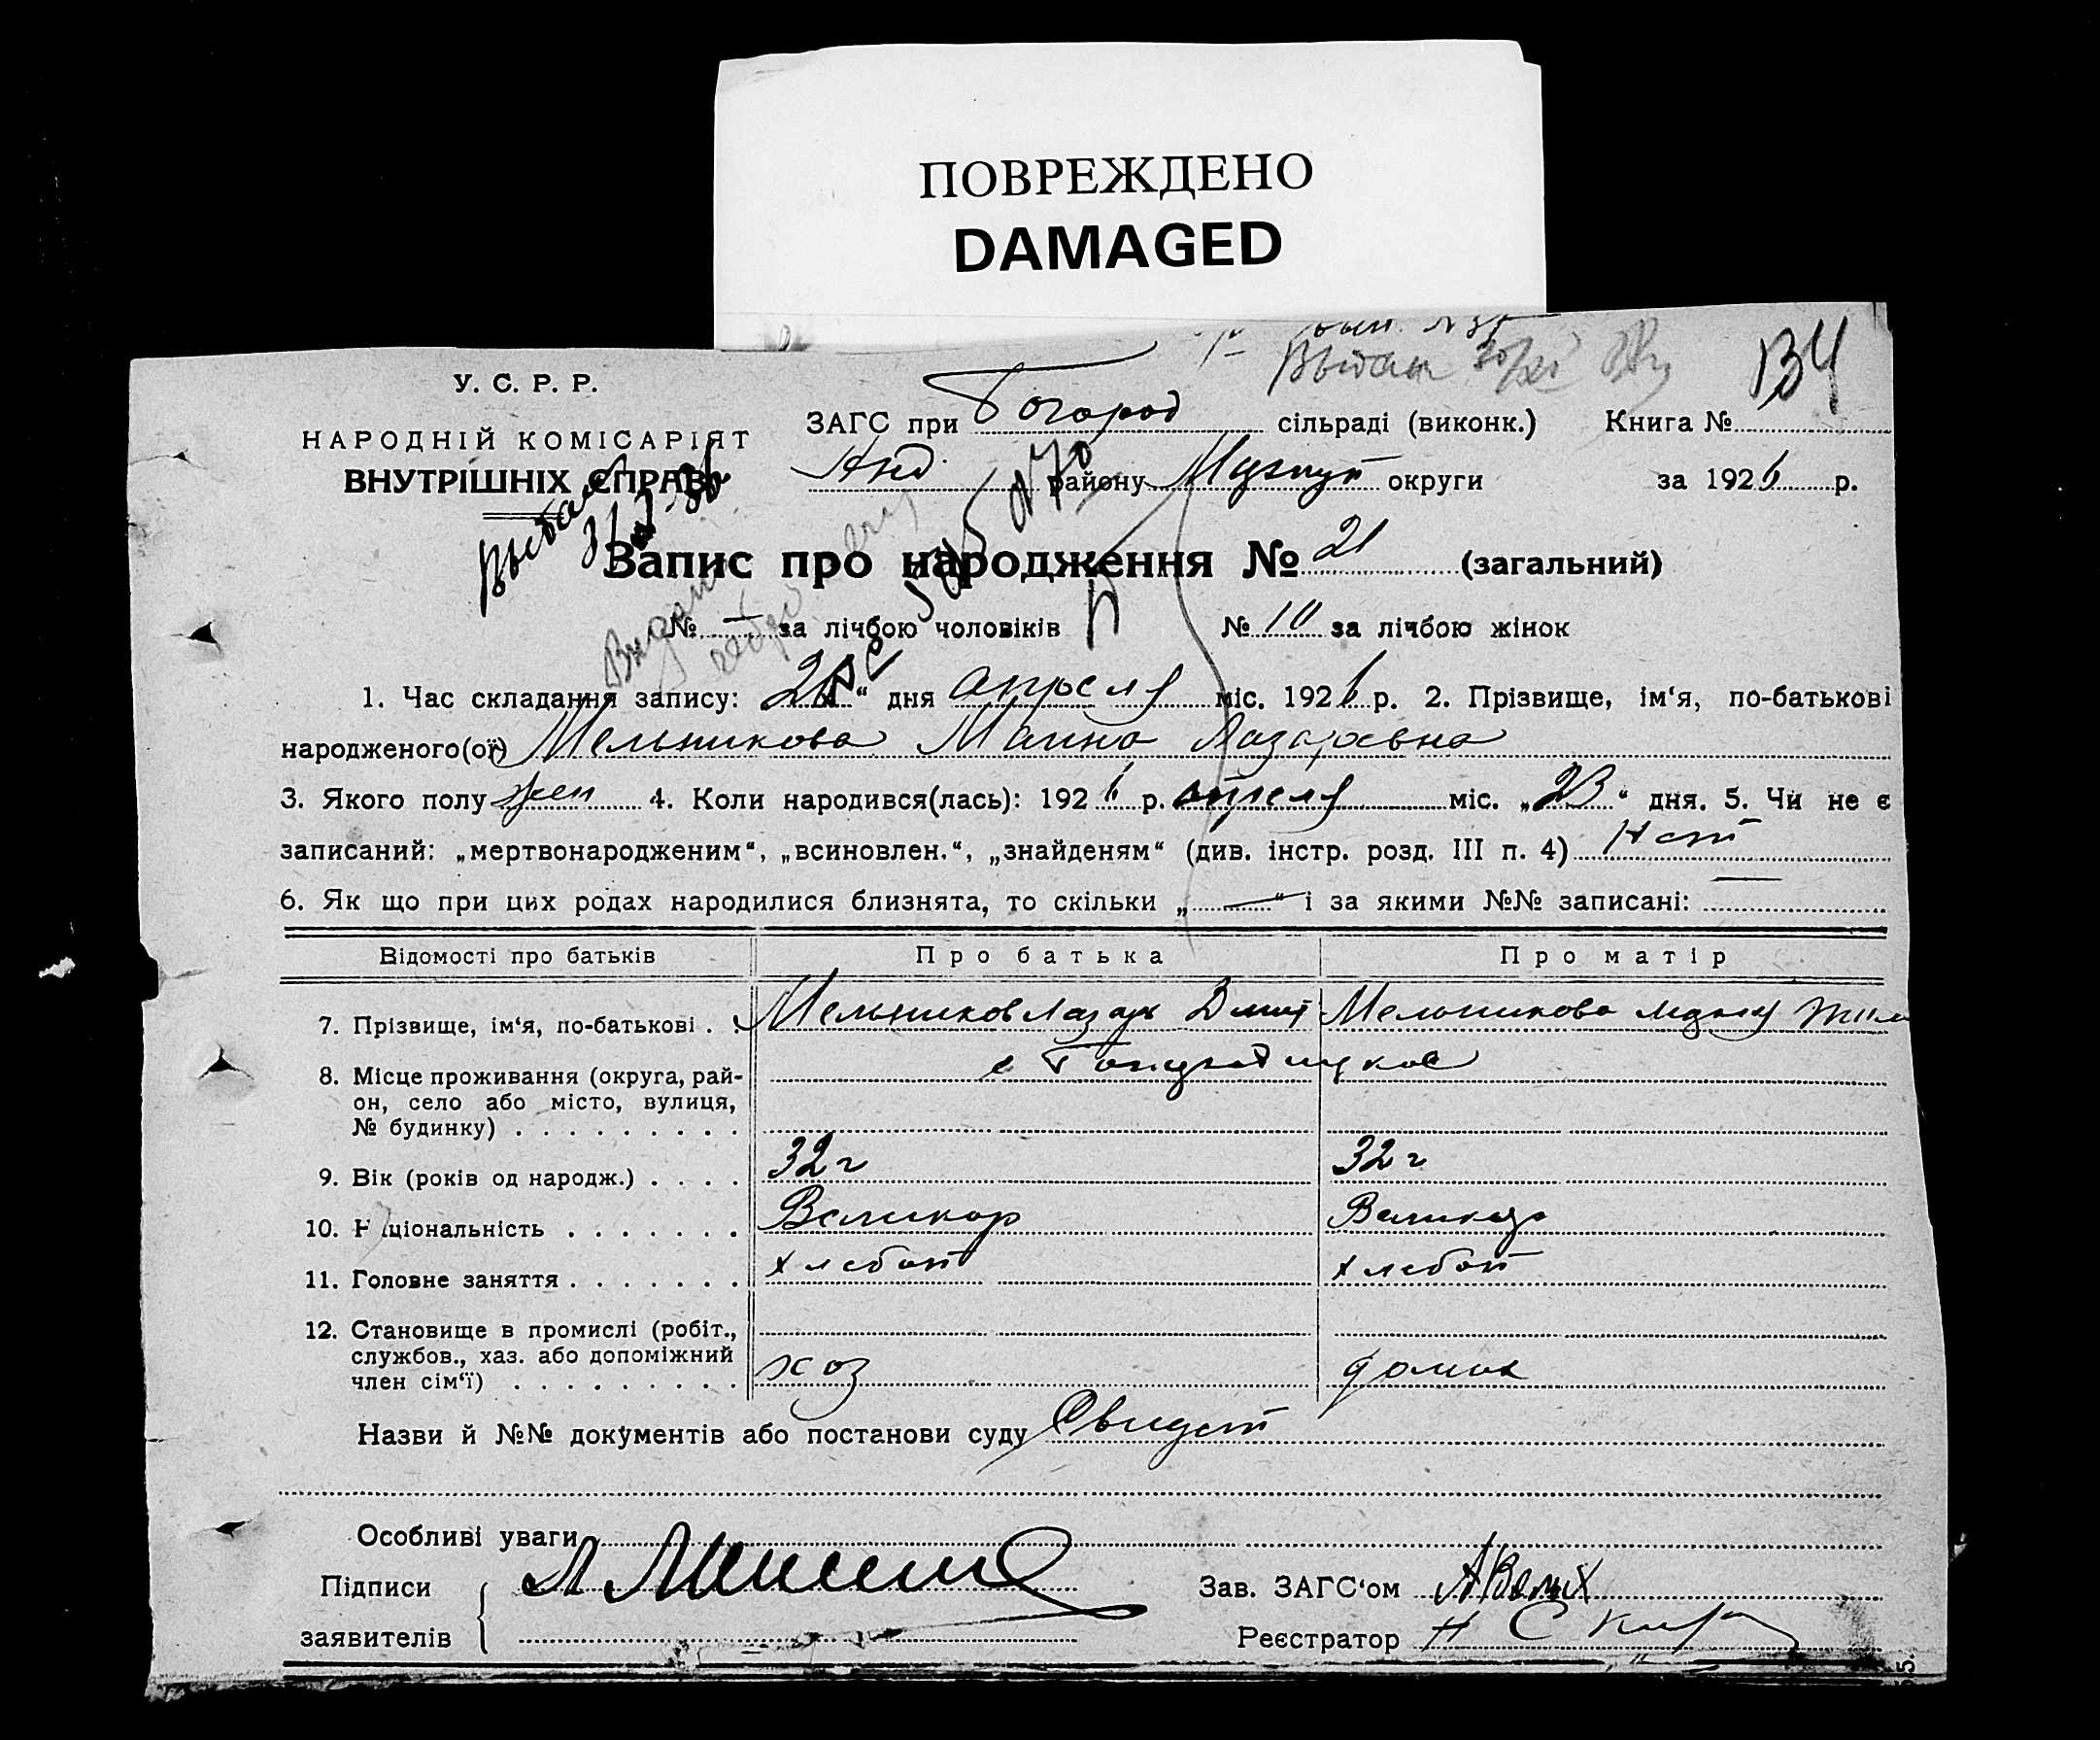 ПОВРЕЖДЕНО
DAMAGED
У. С. Р. Р.
НАРОДНІЙ КОМІСАРІЯТ
ВНУТРІШНІХ СПРАВ
Выдан
ЗАГС при Богород сільраді (виконк.) Книга №
району округи за 1926 р.
Запис про народження № 21 (загальний)
№ — за лічбою чоловіків № 10 за лічбою жінок
1. Час складання запису: “ дня апреля міс. 1926 р. 2. Прізвище, ім‘я, по-батькові
народженого(ої) Мельникова Лазаревна
3. Якого полу жен 4. Коли народився(лась): 1926 р. апреля міс. „23“ дня. 5. Чи не є
записаний: „мертвонародженим“, „всиновлен.“, „знайденям“ (див. інстр. розд. III п. 4) Нет
6. Як що при цих родах народилися близнята, то скільки „—“ і за якими №№ записані: —
Відомості про батьків Про батька Про матір
7. Прізвище, ім‘я, по-батькові . . Мельников Лазарь Дмит Мельникова
8. Місце проживання (округа, рай-
он, село або місто, вулиця,
№ будинку) . . . . . . . . .
9. Вік (років од народж.) . . . . 32 г 32 г
10. Національність . . . . . . . Великор Великор
11. Головне заняття . . . . . . . хлебоп хлебоп
12. Становище в промислі (робіт.,
службов., хаз. або допоміжний
член сім‘ї) . . . . . . . . . хоз домох
Назви й №№ документів або постанови суду Свидет
Особливі уваги
Підписи
заявителів
Зав. ЗАГС‘ом
Реєстратор